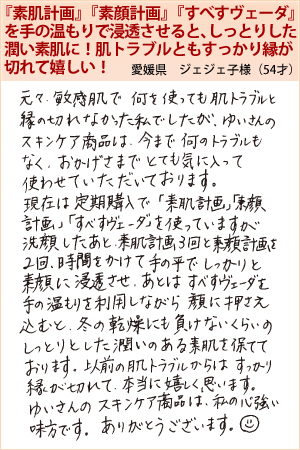 『素肌計画』『素顔計画』『すべすヴェーダ』
を手の温もりで浸透させると、しっとりした
潤い素肌に！肌トラブルともすっかり縁が
切れて嬉しい！
愛媛県　ジェジェ子様（54才）
元々、敏感肌で 何を使っても肌トラブルと
縁の切れなかった私でしたが、ゆいさんの
スキンケア商品は、今まで何のトラブルも
なく、おかげさまでとても気に入って
使わせていただいております。
現在は定期購入で「素肌計画」「素顔
計画」「すべすヴェーダ」を使っていますが
洗顔したあと、素肌計画3回と素顔計画を
2回、時間をかけて手の平でしっかりと
素顔に浸透させ、あとはすべすヴェーダを
手の温もりを利用しながら 顔に押さえ
込むと、冬の乾燥にも負けないくらいの
しっとりとした潤いのある素肌を保てて
おります。以前の肌トラブルからは すっかり
縁が切れて、本当に嬉しく思います。
ゆいさんの スキンケア商品は、私の心強い
味方です。ありがとうございます。